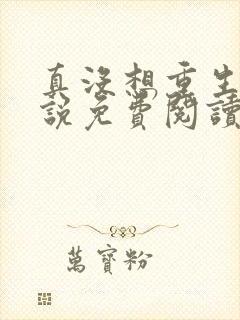 真沒想重生
說免費閱讀
萬寶粉